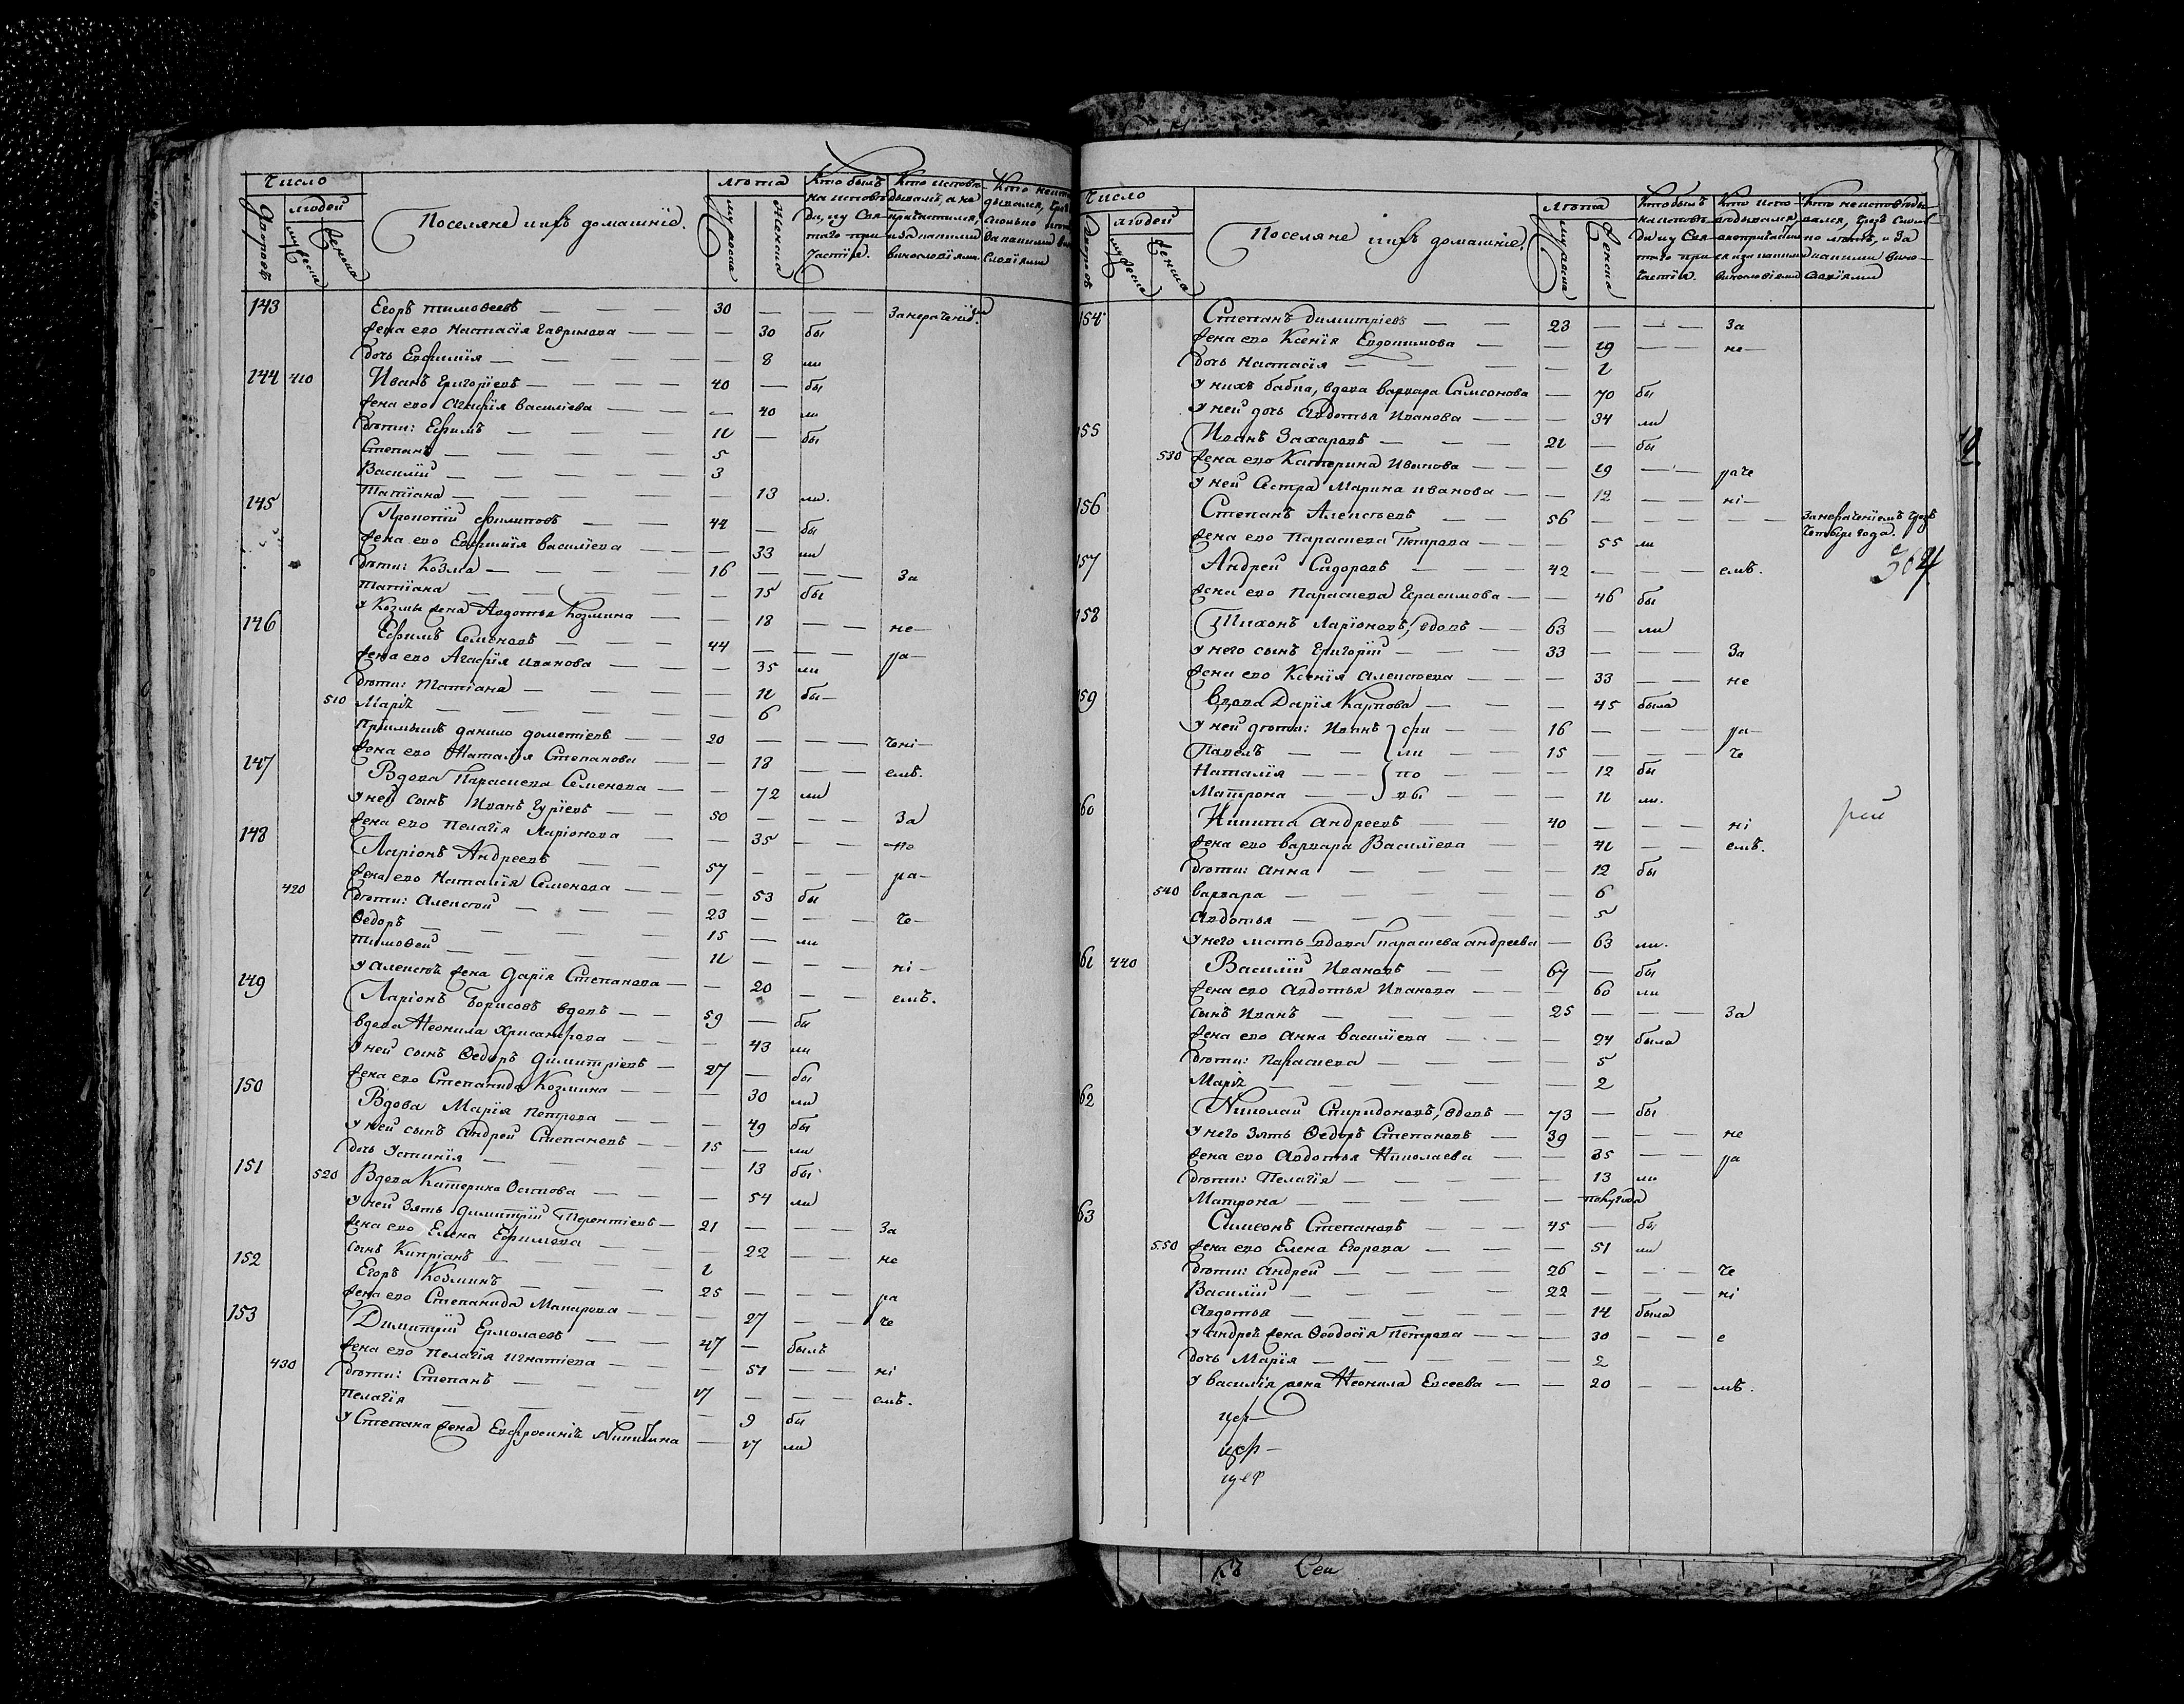 Число
людей
Дворовъ
мужеска
женска
Поселяне ихъ домашніе.
Лѣта
мужеска
женска
Кто былъ на исповѣди и у Святаго причастія.
Кто исповѣдывался, а не причастился, и за какимъ винословіемъ.
143 Егоръ Тимоѳеевъ — 30 — За нерачені
жена его Настасія Гаврилова — 30 бы
дочь Евфимія — 8 ли
144 410 Иванъ Григоріевъ — 40 — бы
жена его Агафія Василіева — 40 ли
дѣти: Ефимъ — 11 — бы
Степанъ — 5
Василій — 3
Татіана — 13 ли.
145 Прокопій Филиповъ — 44 — бы
жена его Евфимія Василіева — 33 ли
дѣти: Козма — 16 — За
Татіана — 15 бы
у Козмы жена Авдотья Козмина — 18 — не
146 Ефимъ Семеновъ — 44 — ра
жена его Агафія Иванова — 35 ли
дѣти: Татіана — 11 бы
510 Марія — 6
Пріимышъ Данило Дометіевъ — 20 — чені
жена его Наталія Степанова — 18 — емъ.
147 Вдова Параскева Семенова — 72 ли
у ней сынъ Иванъ Гуріевъ — 50 — За
жена его Пелагія Ларіонова — 35 — не
148 Ларіонъ Андреевъ — 57 — ра
жена его Наталія Семенова — 53 бы
420 дѣти: Алексѣй — 23 — че
Ѳедоръ — 15 — ли
Тимоѳей — 11 — ні
у Алексѣя жена Дарія Степанова — 20 — емъ.
149 Ларіонъ Борисовъ вдовъ — 59 — бы
вдова Неонила Хрисанфова — 43 ли
у ней сынъ Ѳедоръ Димитріевъ — 27 — бы
жена его Степанида Козмина — 30 ли
150 Вдова Марія Петрова — 49 бы
у ней сынъ Андрей Степановъ — 15 — ли
дочь Устинія — 13 бы
151 520 Вдова Катерина Осипова — 54 ли
у ней зять Димитрій Терентіевъ — 21 — За
жена его Елена Ефимова — 22 — не
сынъ Кипріанъ — 1
152 Егоръ Козминъ — 25 — ра
жена его Степанида Макарова — 27 — че
153 Димитрій Ермолаевъ — 47 — былъ
жена его Пелагія Игнатіева — 51 — ні
430 дѣти: Степанъ — 17 — емъ.
Пелагія — 9 бы
у Степана жена Евфросинія Никитина — 17 ли
Число
людей
мужеска
женска
Поселяне ихъ домашніе.
Лѣта
мужеска
женска
Кто былъ на исповѣди и у Святаго причастія.
Кто исповѣдывался а не причастился и за какимъ винословіемъ
Кто не исповѣдывался, чрезъ сколько лѣтъ, и за какими винословіями
154 Степанъ Димитріевъ — 23 — За
жена его Ксенія Евдокимова — 19 — не
дочь Настасія — 1
у нихъ бабка, вдова Варвара Самсонова — 70 бы
у ней дочь Авдотья Иванова — 34 ли
155 Иванъ Захаровъ — 21 — бы
530 жена его Катерина Иванова — 19 — раче
у ней сестра Марина Иванова — 12 — ні
156 Степанъ Алексѣевъ — 56 — За нераченіемъ чрезъ четыре года.
жена его Параскева Петрова — 55 ли
304
157 Андрей Сидоровъ — 42 — емъ.
жена его Параскева Герасимова — 46 бы
158 Тихонъ Ларіоновъ, вдовъ — 63 — ли
у него сынъ Григорій — 33 — За
жена его Ксенія Алексѣева — 33 — не
159 Вдова Дарія Карпова — 45 была
у ней дѣти: Иванъ } фи — 16 — ра
Павелъ } ли — 15 — че
Наталія } по — 12 бы
Матрона } вы — 11 ли.
60 Никита Андреевъ — 40 — ні
рей
жена его Варвара Василіева — 41 — емъ.
дѣти: Анна — 12 бы
540 Варвара — 6
Авдотья — 5
у него мать вдова Параскева Андреева — 63 ли.
61 440 Василій Ивановъ — 67 — бы
жена его Авдотья Иванова — 60 ли
сынъ Иванъ — 25 — За
жена его Анна Василіева — 24 была
дѣти: Параскева — 5
Марія — 2
62 Николай Спиридоновъ, вдовъ — 73 — бы
у него зять Ѳедоръ Степановъ — 39 — не
жена его Авдотья Николаева — 35 — ра
дѣти: Пелагія — 13 ли
Матрона — полугода
63 Симеонъ Степановъ — 45 — бы
550 жена его Елена Егорова — 51 ли
дѣти: Андрей — 26 — че
Василій — 22 — ні
Авдотья — 14 была
у Андрея жена Ѳеодосія Петрова — 30 — е
дочь Марія — 2
у Василія жена Неонила Евсеева — 20 — мъ.
цер
цер
цер